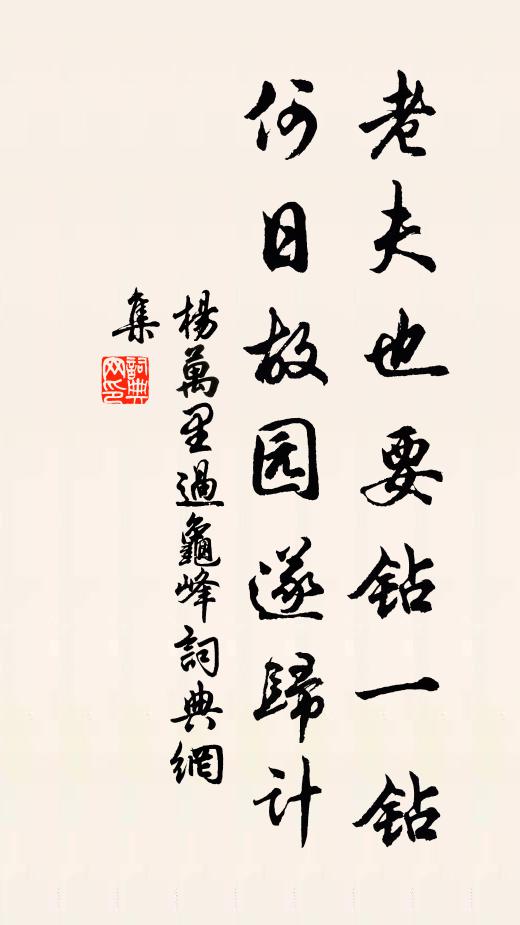 老夫也要钻一钻
何日故园遂歸计
楊萬里過龜峰詞典網
集
詞典
网印